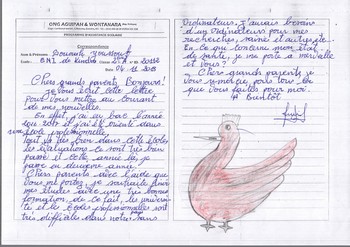 ONG AGUIPAH & WONTANARA
PROGRAMME D'EDUCATION SCOLAIRE
Correspondance
Nom & Prénoms: Soumah Youssouf
Ecole: ENI de Kindia
04 11 2018
Chers grands parents Bonjour!
je vous écrit cette lettre
pour vous mettre au courant
de mes nouvelles.
En effet, j'ai eu bac l'année
2017 et j'ai été orienté dans
une école professionnelle.
Tout va très bien dans cette école
les évaluations ce sont très bien
passé et cette année là, je
passe en deuxième année.
Chers parents avec l'aide que
vous me portez, je souhaite finir
mes études avec une très bonne
formation, de ce fait, les univer
tés et les écoles professionnelles sont
très difficiles dans notre pays sans
ordinateurs. J'aurais besoin
d'un ordinateurs pour mes
recherches, saisie et autres etc.
En ce qui concerne mon état
de santé, je me porte à merveille
et vous?
Chers grands parents je
vous remercie pour tous ce
que vous faites pour moi.
A Bientôt